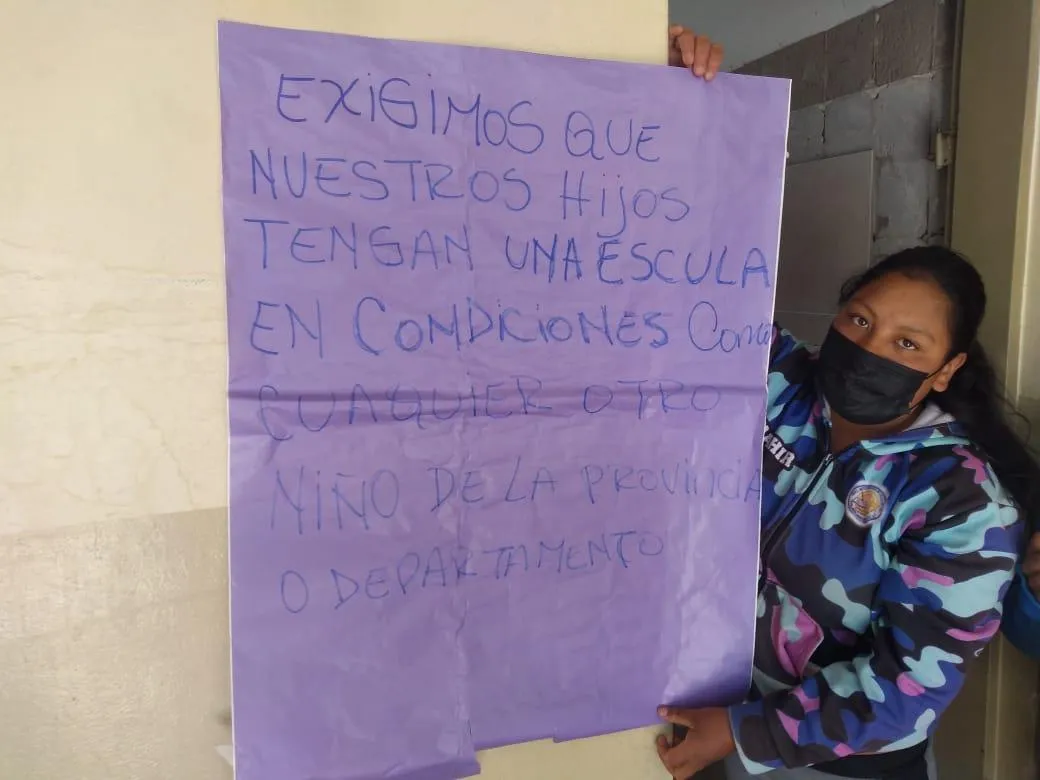 EXiGIMOS QUE
NUESTROS Hijos
TENGAN UNA ESCULA
EN CONDICIONES Como
CUAQUIER OTRO
NIÑO DE LA PROVINCIA
O DEPARTAMENTO
AHIR